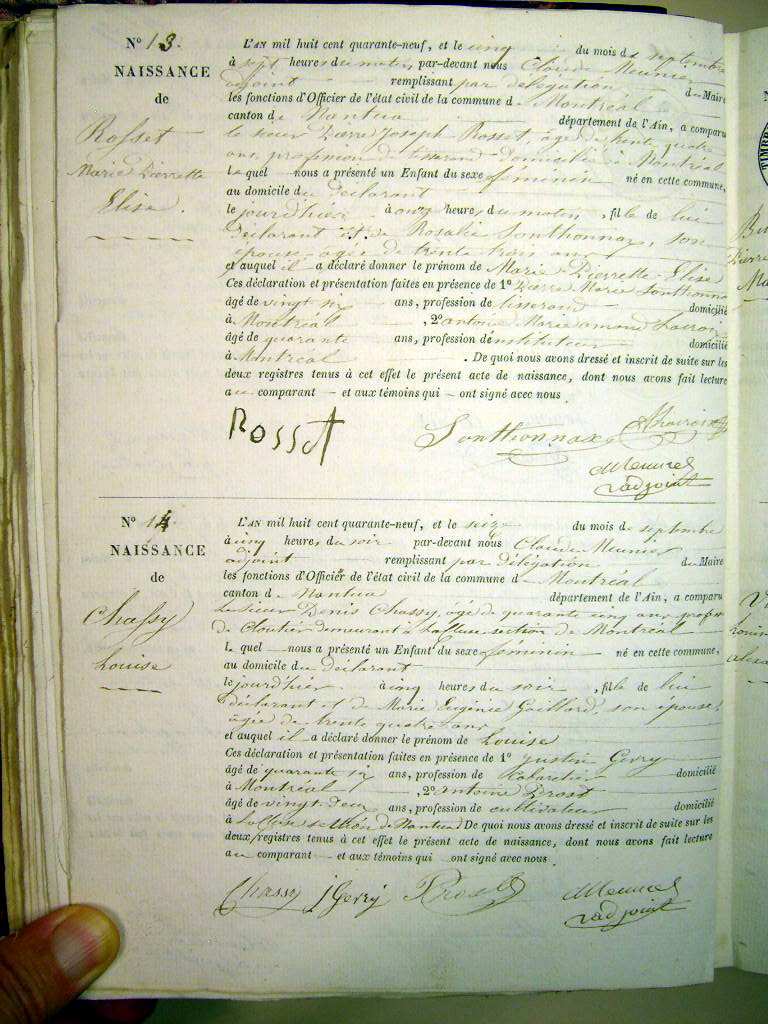 N° 13.
NAISSANCE
de
Rosset
Marie Pierrette
Elise.
L'AN mil huit cent quarante-neuf, et le cinq du mois de septembre
à sept heures du matin, par-devant nous Claude Meunier
adjoint remplissant par délégation du Maire
les fonctions d'Officier de l'état civil de la commune de Montréal
canton de Nantua département de l'Ain, a comparu
le sieur Pierre Joseph Rosset, âgé de trente quatre
ans, profession de tisserand domicilié à Montréal
Le quel nous a présenté un Enfant du sexe féminin né en cette commune,
au domicile du déclarant
le jourd'hier à onze heures du matin, fille de lui
déclarant et de Rosalie Sonthonnax, son
épouse âgée de trente trois ans
et auquel il a déclaré donner le prénom de Marie Pierrette Elise
Ces déclaration et présentation faites en présence de 1° Pierre Marie Sonthonnax
âgé de vingt six ans, profession de tisserand domicilié
à Montréal, 2° antoine Marie amand
âgé de quarante ans, profession d'instituteur domicilié
à Montréal. De quoi nous avons dressé et inscrit de suite sur les
deux registres tenus à cet effet le présent acte de naissance, dont nous avons fait lecture
au comparant et aux témoins qui ont signé avec nous.
Rosset Sonthonnax
Meunier
adjoint
N° 14.
NAISSANCE
de
Chassy
Louise
L'AN mil huit cent quarante-neuf, et le seize du mois de septembre
à cinq heures du soir par-devant nous Claude Meunier
adjoint remplissant par délégation du Maire
les fonctions d'Officier de l'état civil de la commune de Montréal
canton de Nantua département de l'Ain, a comparu
Le sieur Denis Chassy, âgé de quarante cinq ans profession
de Cloutier demeurant à Lacluse section de Montréal
Le quel nous a présenté un Enfant du sexe féminin né en cette commune,
au domicile du déclarant
le jourd'hier à cinq heures du soir, fille de lui
déclarant et de Marie Eugénie Gaillard, son épouse,
âgée de trente quatre ans
et auquel il a déclaré donner le prénom de Louise
Ces déclaration et présentation faites en présence de 1° Justin Gevry
âgé de quarante six ans, profession de Cabaretier domicilié
à Montréal, 2° Antoine Prost
âgé de vingt deux ans, profession de cultivateur domicilié
à La Cluse De quoi nous avons dressé et inscrit de suite sur les
deux registres tenus à cet effet le présent acte de naissance, dont nous avons fait lecture
au comparant et aux témoins qui ont signé avec nous.
Chassy J Gevry Prost Meunier
adjoint
TIMBRE